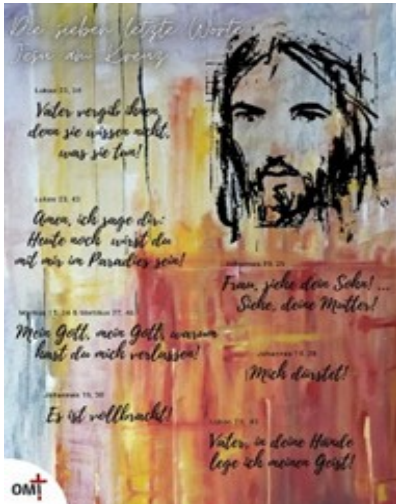 Die sieben letzte Worte
Jesu am Kreuz
Lukas 23, 34
Vater vergib ihnen,
denn sie wissen nicht,
was sie tun!
Lukas 23, 43
Amen, ich sage dir:
Heute noch wirst du
mit mir im Paradies sein!
Johannes 19,
Frau, siehe dein Sohn! ...
Siehe, deine Mutter!
Markus 15, 34 & Matthäus 27, 46
Mein Gott, mein Gott, warum
hast du mich verlassen!
Johannes 19, 28
Mich dürstet!
Johannes 19, 30
Es ist vollbracht!
Lukas 23,
Vater, in deine Hände
lege ich meinen Geist!
OMI